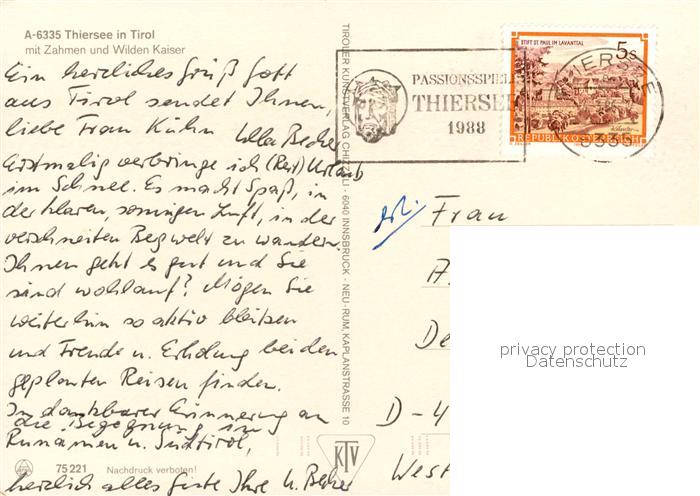 A-6335 Thiersee in Tirol
mit Zahmen und Wilden Kaiser
Ein herzliches Grüß Gott
aus Tirol sendet Ihnen,
liebe Frau Kühn Ulla Becher
Erstmalig verbringe ich (Rest) Urlaub
im Schnee. Es macht Spaß, in
der klaren, sonnigen Luft, in der
verschneiten Bergwelt zu wandern.
Ihnen geht es gut und Sie
sind wohlauf? Mögen Sie
weiterhin so aktiv bleiben
und Freude u. Erholung bei den
geplanten Reisen finden.
In dankbarer Erinnerung an
die Begegnung in
u. Südtirol,
herzlich alles Gute Ihre U. Becher
75 221 Nachdruck verboten!
TIROLER KUNSTVERLAG CHIZZALI · 6040 INNSBRUCK - NEU-RUM, KAPLANSTRASSE 10
KTV
PASSIONSSPIELE
THIERSEE
1988
STIFT ST. PAUL IM LAVANTTAL
5s
REPUBLIK ÖSTERREICH
THIERSEE
6335
Frau
A.
De
D-4
West
privacy protection
Datenschutz